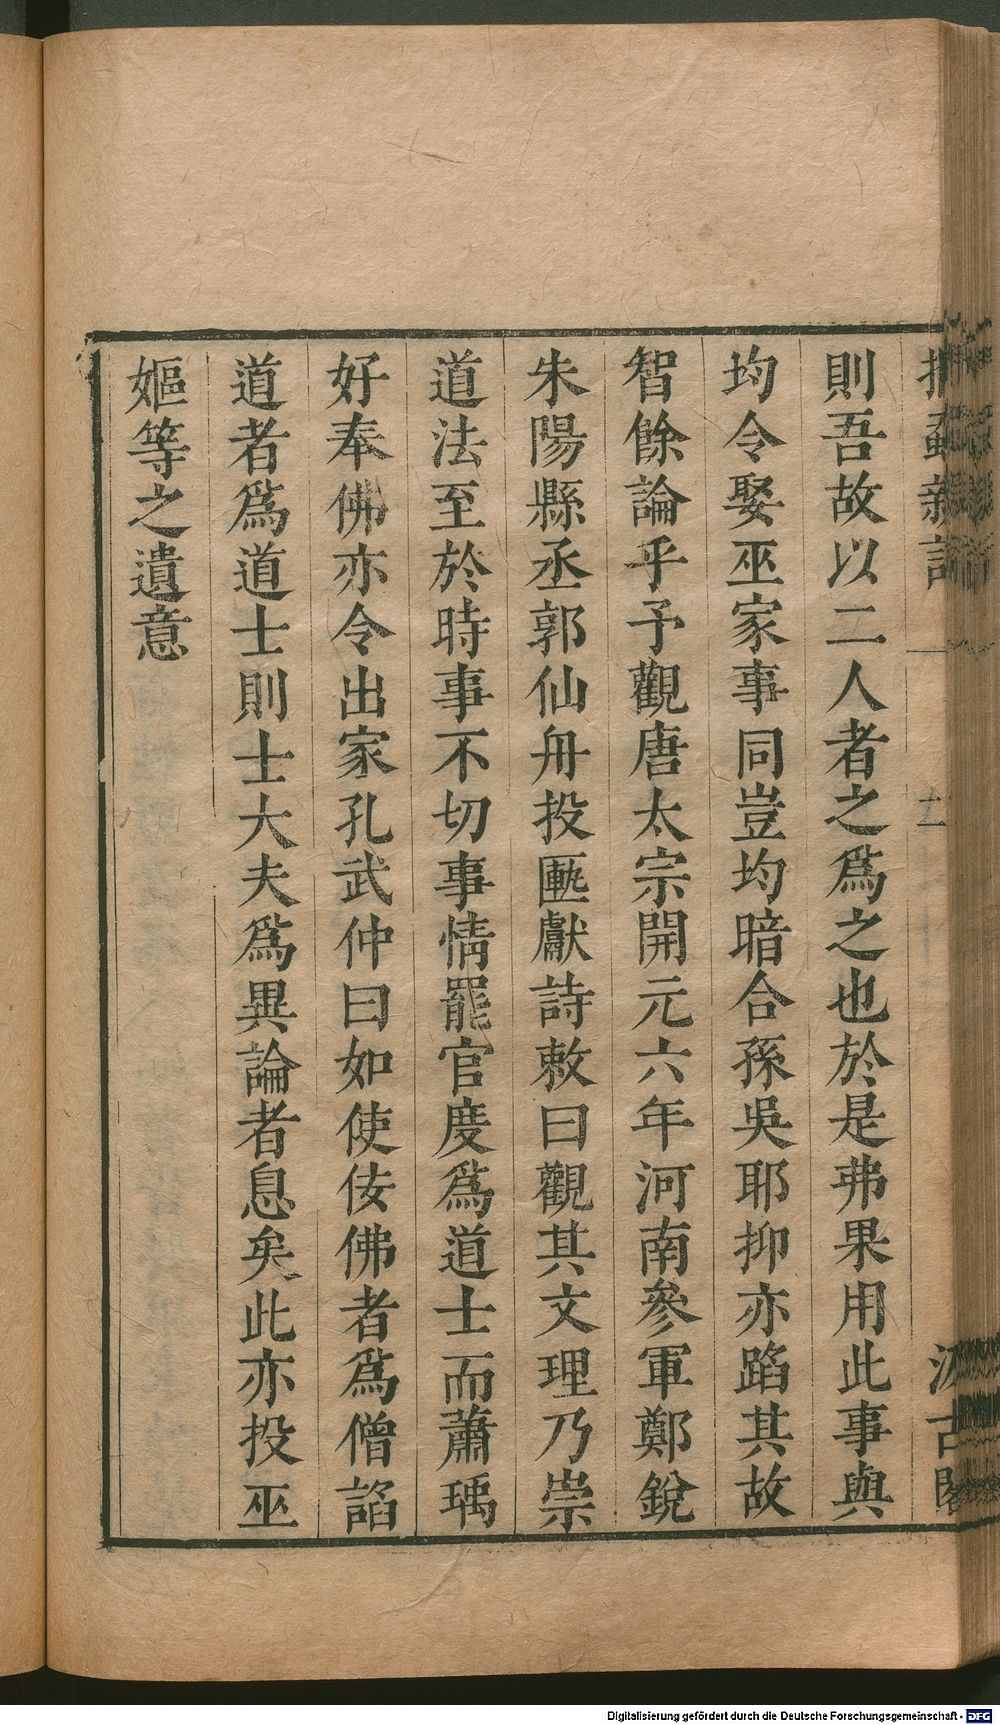 捫蝨新話
十二
汲古閣
則吾故以二人者之爲之也於是弗果用此事與
均令娶巫家事同豈均暗合孫吳耶抑亦蹈其故
智餘論乎予觀唐太宗開元六年河南參軍鄭銳
朱陽縣丞郭仙舟投匭獻詩敕曰觀其文理乃崇
道法至於時事不切事情罷官度爲道士而蕭瑀
好奉佛亦令出家孔武仲曰如使佞佛者爲僧諂
道者爲道士則士大夫爲異論者息矣此亦投巫
嫗等之遺意
Digitalisierung gefördert durch die Deutsche Forschungsgemeinschaft - DFG